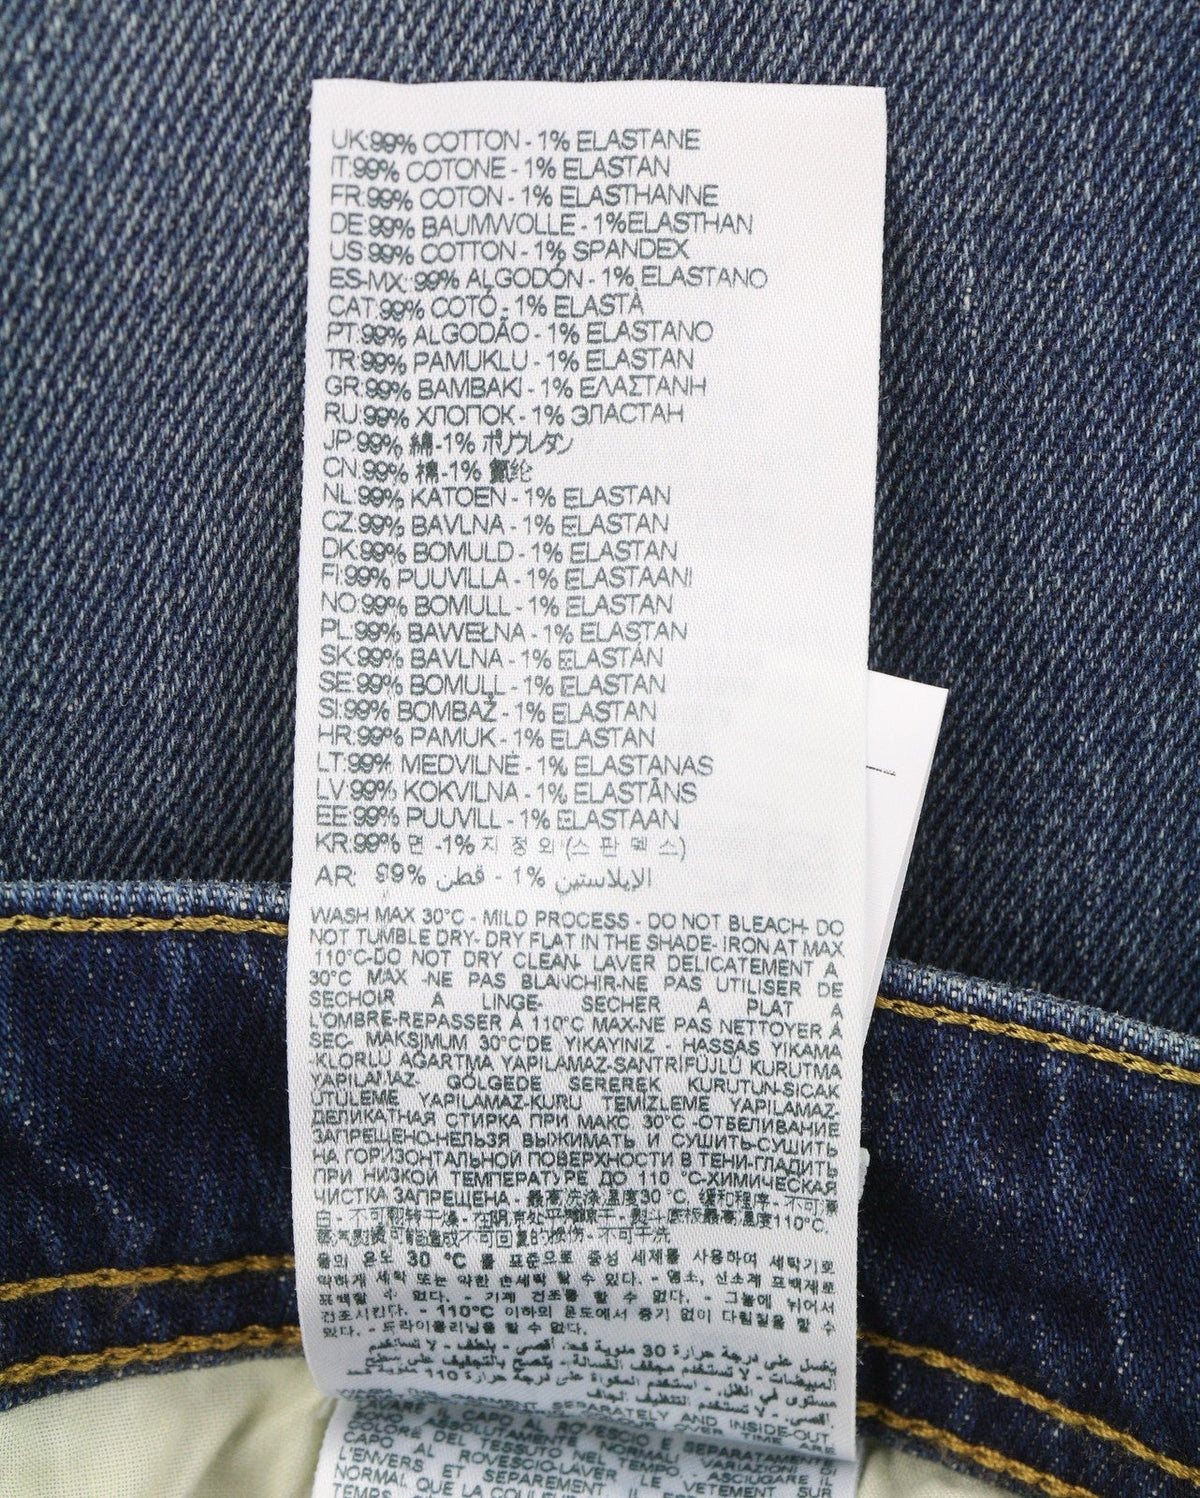 UK:99% COTTON - 1% ELASTANE
IT:99% COTONE - 1% ELASTAN
FR:99% COTON - 1% ELASTHANNE
DE:99% BAUMWOLLE - 1%ELASTHAN
US:99% COTTON - 1% SPANDEX
ES-MX:99% ALGODÓN - 1% ELASTANO
CAT:99% COTÓ - 1% ELASTÀ
PT:99% ALGODÃO - 1% ELASTANO
TR:99% PAMUKLU - 1% ELASTAN
GR:99% BAMBAKI - 1% ΕΛΑΣΤΑΝΗ
RU:99% ХЛОПОК - 1% ЭЛАСТАН
JP:99% 綿-1% ポリウレタン
CN:99% 棉-1% 氨纶
NL:99% KATOEN - 1% ELASTAN
CZ:99% BAVLNA - 1% ELASTAN
DK:99% BOMULD - 1% ELASTAN
FI:99% PUUVILLA - 1% ELASTAANI
NO:99% BOMULL - 1% ELASTAN
PL:99% BAWEŁNA - 1% ELASTAN
SK:99% BAVLNA - 1% ELASTÁN
SE:99% BOMULL - 1% ELASTAN
SI:99% BOMBAŽ - 1% ELASTAN
HR:99% PAMUK - 1% ELASTAN
LT:99% MEDVILNĖ - 1% ELASTANAS
LV:99% KOKVILNA - 1% ELASTĀNS
EE:99% PUUVILL - 1% ELASTAAN
KR:99% 면 -1% 지 정 외 (스 판 덱 스)
AR: 99% قطن - 1% الإيلاستين
WASH MAX 30°C - MILD PROCESS - DO NOT BLEACH- DO
NOT TUMBLE DRY- DRY FLAT IN THE SHADE- IRON AT MAX
110°C-DO NOT DRY CLEAN- LAVER DELICATEMENT A
30°C MAX -NE PAS BLANCHIR-NE PAS UTILISER DE
SECHOIR A LINGE- SECHER A PLAT A
L'OMBRE-REPASSER Á 110°C MAX-NE PAS NETTOYER Á
SEC- MAKSIMUM 30°C'DE YIKAYINIZ - HASSAS YIKAMA
-KLORLU AĞARTMA YAPILAMAZ-SANTRİFÜJLÜ KURUTMA
YAPILAMAZ- GÖLGEDE SEREREK KURUTUN-SICAK
ÜTÜLEME YAPILAMAZ-KURU TEMİZLEME YAPILAMAZ-
ДЕЛИКАТНАЯ СТИРКА ПРИ МАКС 30°C -ОТБЕЛИВАНИЕ
ЗАПРЕЩЕНО-НЕЛЬЗЯ ВЫЖИМАТЬ И СУШИТЬ-СУШИТЬ
НА ГОРИЗОНТАЛЬНОЙ ПОВЕРХНОСТИ В ТЕНИ-ГЛАДИТЬ
ПРИ НИЗКОЙ ТЕМПЕРАТУРЕ ДО 110 °C-ХИМИЧЕСКАЯ
ЧИСТКА ЗАПРЕЩЕНА - 最高洗涤温度30 °C, 缓和程序 - 不可漂
白 - 不可翻转干燥 - 在阴凉处平摊晾干 - 熨斗底板最高温度110°C,
蒸汽熨烫可能造成不可回复的损伤 - 不可干洗
물의 온도 30 °C 를 표준으로 중성 세제를 사용하여 세탁기로
약하게 세탁 또는 약한 손세탁 할 수 있다. - 염소, 산소계 표백제로
표백할 수 없다. - 기계 건조를 할 수 없다. - 그늘에 뉘어서
건조시킨다. - 110°C 이하의 온도에서 증기 없이 다림질을 할 수
있다. - 드라이클리닝을 할 수 없다.
يغسل على درجة حرارة 30 مئوية كحد أقصى - بلطف - لا تستخدم
المبيضات - لا تستخدم مجفف الغسالة - ينصح بالتجفيف على سطح
مستوى في الظل - استخدم المكواة على درجة حرارة 110 مئوية كحد
أقصى - لا تستخدم التنظيف الجاف
WASH SEPARATELY AND INSIDE-OUT.
OVER TIME ARE
LAVARE IL CAPO AL ROVESCIO E SEPARATAMENTE
SONO ASSOLUTAMENTE NORMALI VARIAZIONI DI
COLORE DEL TESSUTO NEL TEMPO - ASCIUGARE IL
CAPO AL ROVESCIO-LAVER LE VETEMENT SUR
L'ENVERS ET SEPAREMENT - IL EST
NORMAL QUE LA COULEUR
TEMPS